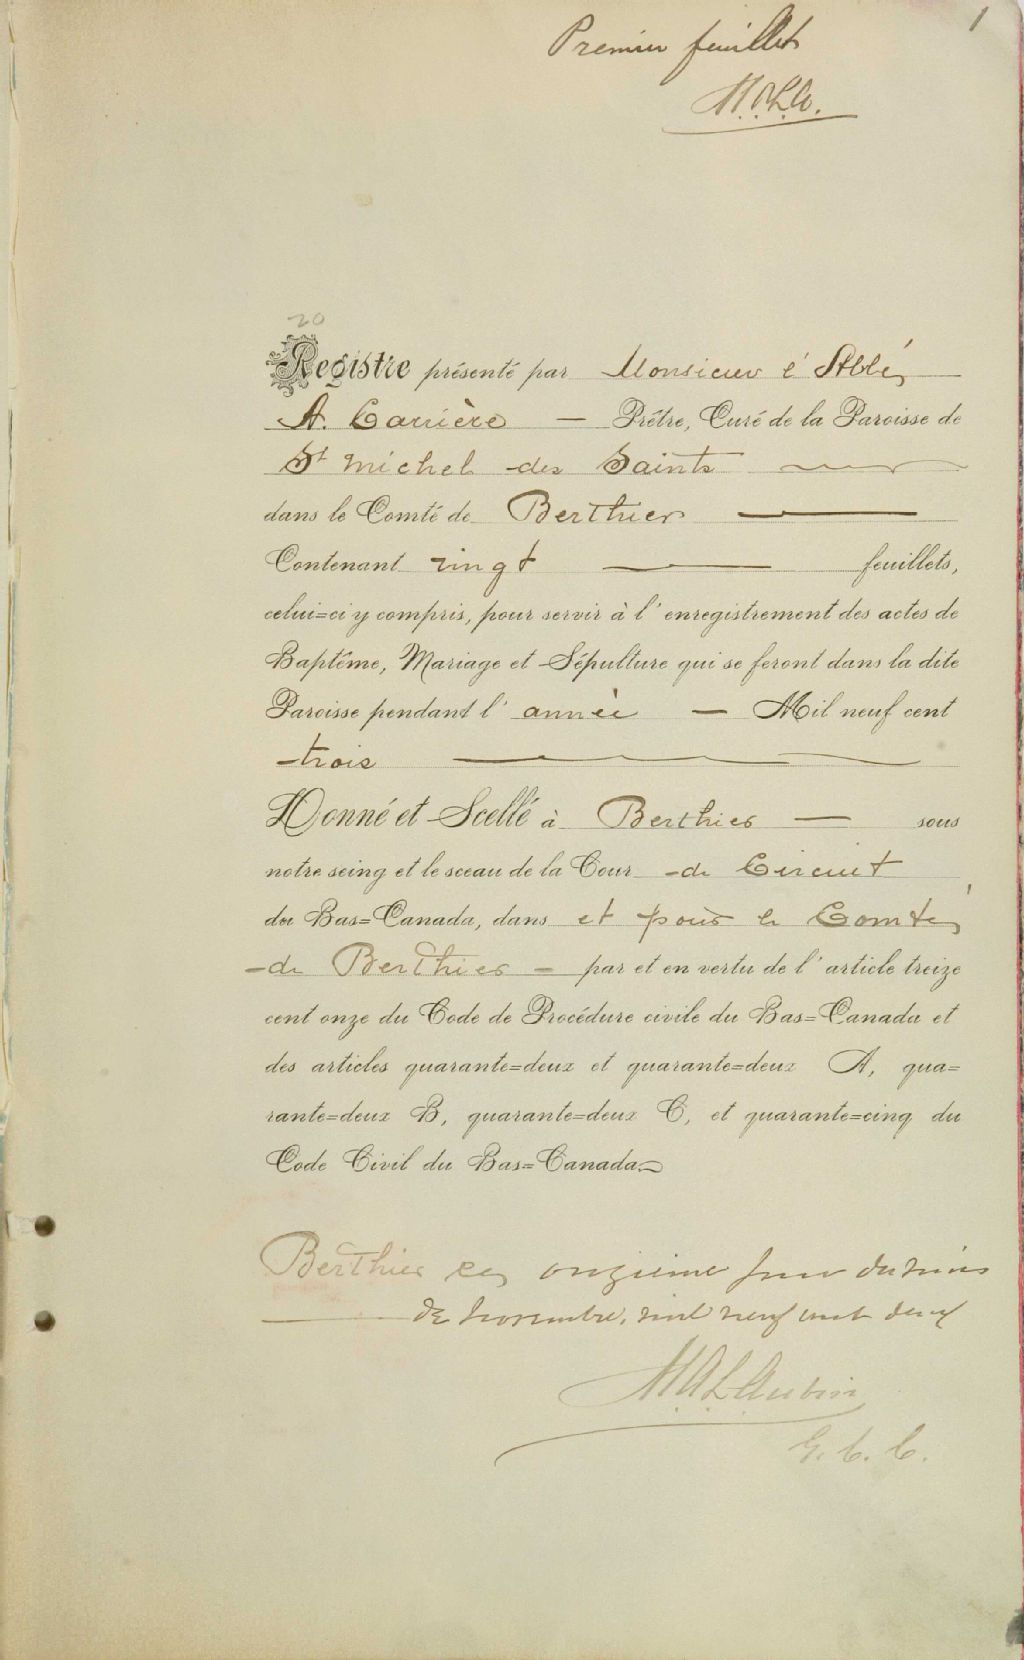 1
Premier feuillet
M.A.L.A.
20
Registre présenté par Monsieur l'Abbé
A. Carrière — Prêtre, Curé de la Paroisse de
St Michel des Saints
dans le Comté de Berthier —
Contenant vingt — feuillets,
celui=ci y compris, pour servir à l'enregistrement des actes de
Baptême, Mariage et Sépulture qui se feront dans la dite
Paroisse pendant l'année — Mil neuf cent
trois —
Donné et Scellé à Berthier — sous
notre seing et le sceau de la Cour de Circuit
du Bas=Canada, dans et pour le Comté
de Berthier — par et en vertu de l'article treize
cent onze du Code de Procédure civile du Bas=Canada et
des articles quarante=deux et quarante=deux A, qua=
rante=deux B, quarante=deux C, et quarante=cinq du
Code Civil du Bas=Canada.
Berthier ce onzieme jour du mois
de novembre, mil neuf cent deux
M.A.L. Aubin
G. C. C.